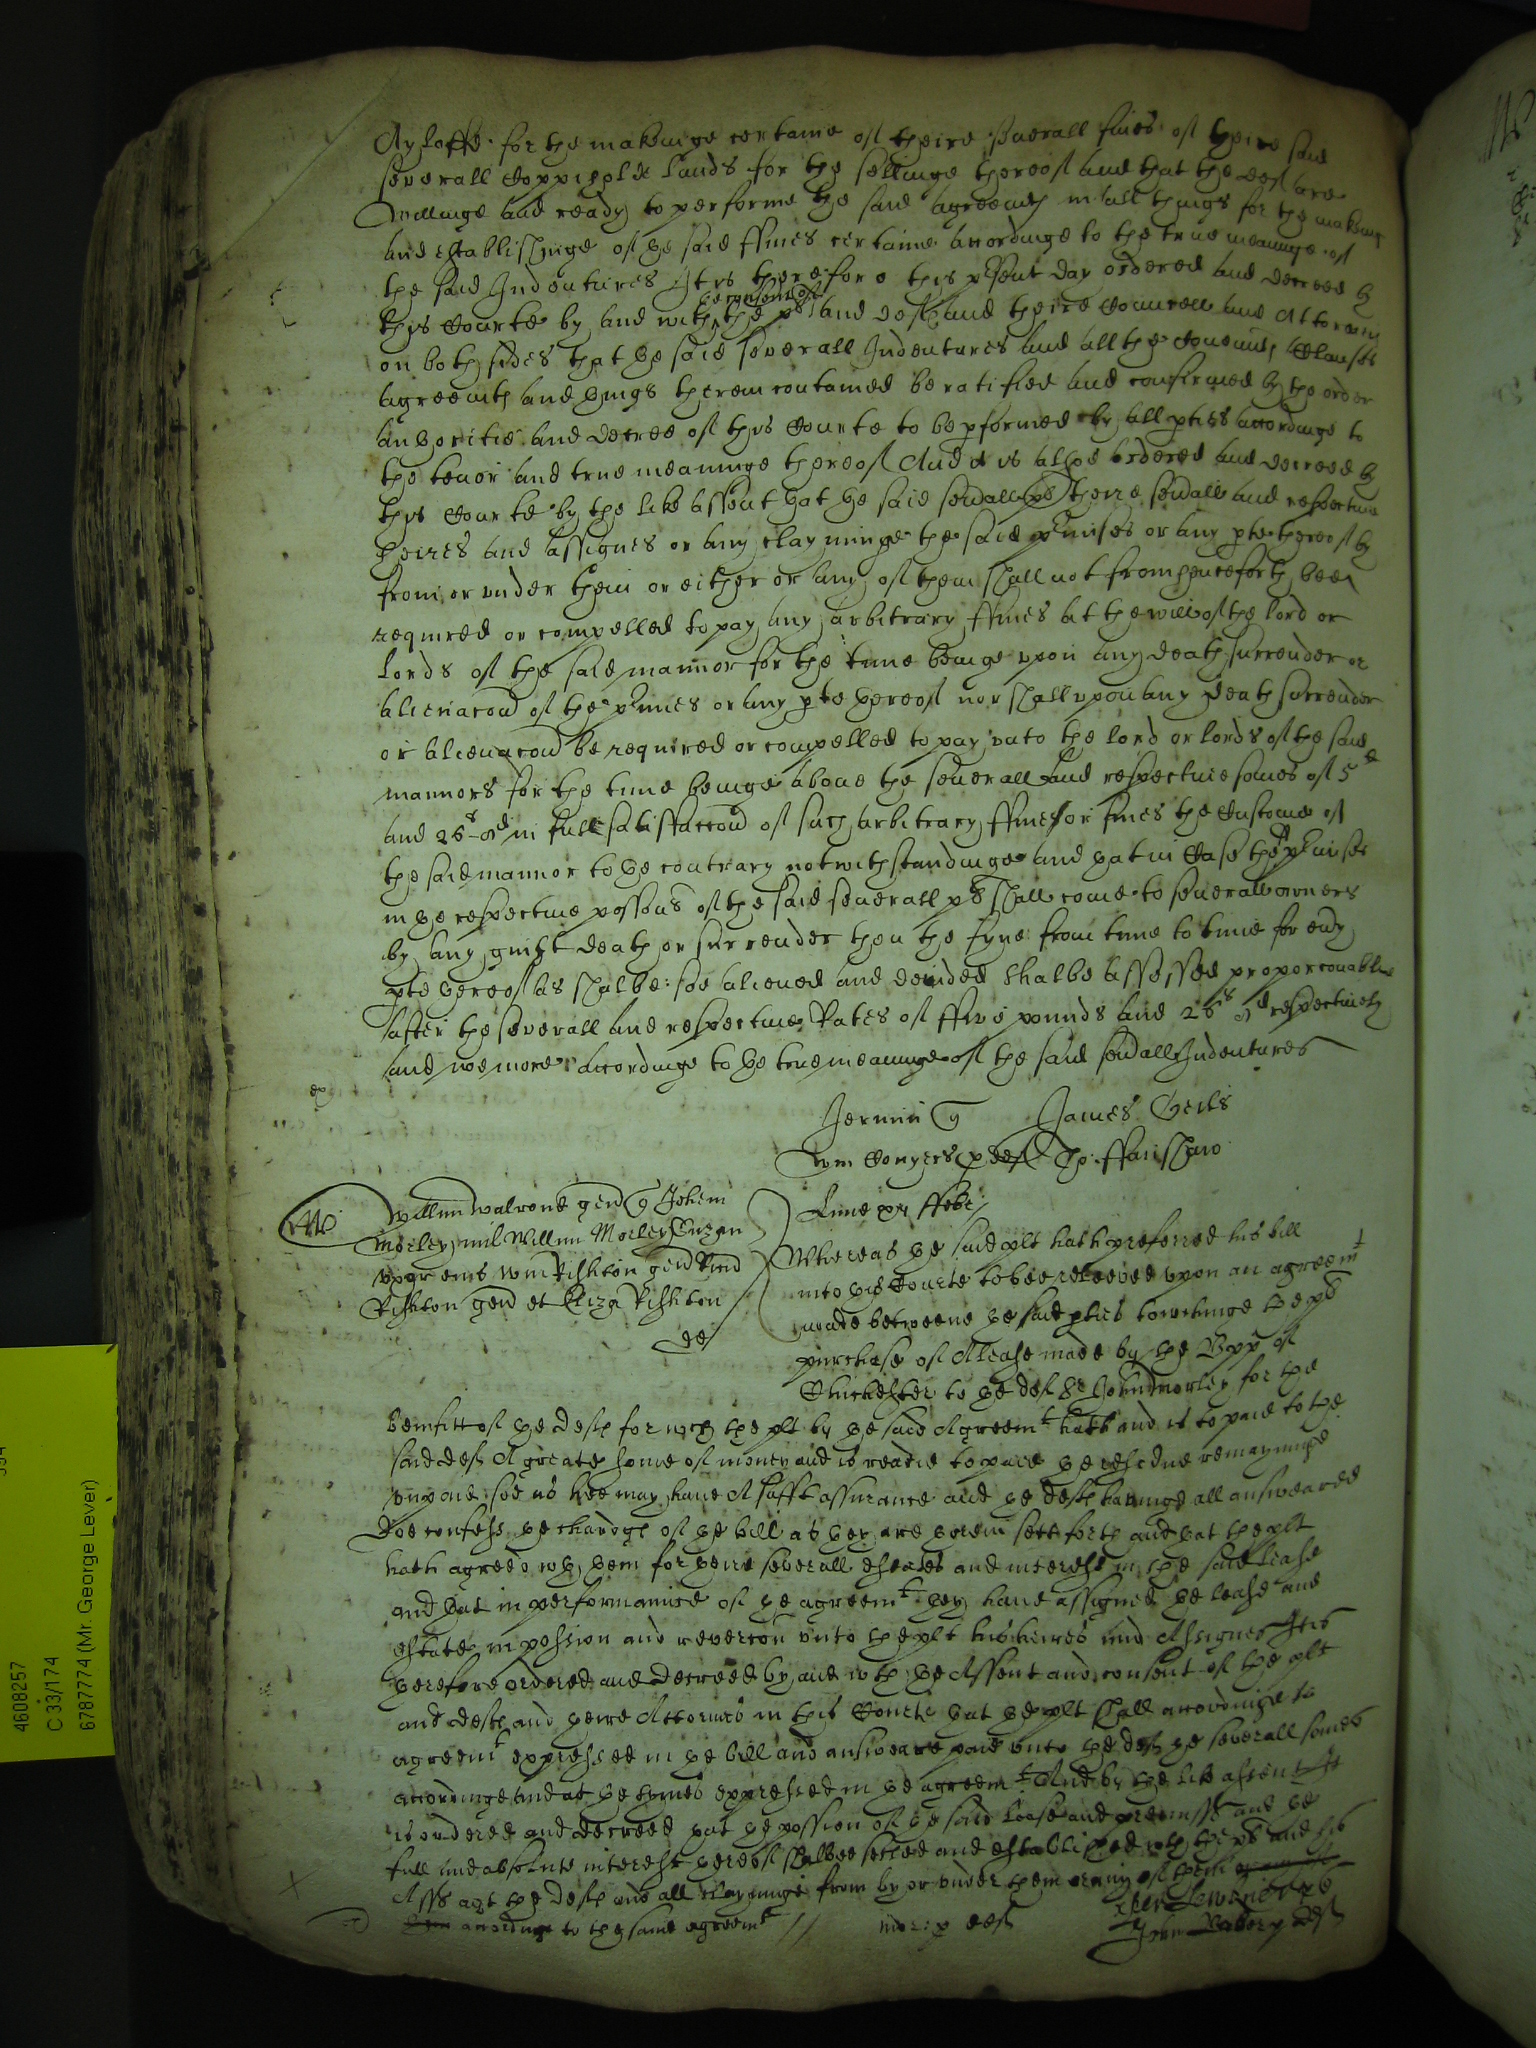 Ayloffe for the makeinge certaine of theire severall fines of theire said
severall Coppiehold lands for the setlinge thereof And that the deftes are
willinge and ready to performe the said agreemts in all things for the makeing
and establishinge of the said ffines certaine accordinge to the true meaninge of
the said Indentures It ys therefore this psent day ordered and decreed by
this Courte by and with the consent of the pls and deftes and theire Councell and Attorneys
on both sides that the said severall Indentures and all the Covenants Clauses
agreemts and things therein contained be ratified and confirmed by the order
authoritie and decree of this Courte to be pformed by all pties accordinge to
the tenor and true meaninge thereof And it is alsoe ordered and decreed by
this Courte by the like assent that the said sevall pls theire sevall and respective
heires and assignes or any clayminge the said pmises or any pte thereof by
from or under them or either or any of them shall not from henceforth bee
required or compelled to pay any arbitrary ffines at the will of the lord or
lords of the said mannor for the time beinge upon any death surrender or
alienacon of the pmises or any pte thereof nor shall upon any death surrender
or alienacon be required or compelled to pay unto the lord or lords of the said
mannors for the time beinge above the severall and respective somes of 5li
and 26s 8d in full satisfaccon of such arbitrary ffines or fines the Custome of
the said mannor to the contrary notwithstandinge And that in Case the pmises
in the respective possons of the said severall pls shall come to severall owners
by any guift death or surrender then the fyne from time to time for evy
pte thereof as shalbe soe aliened and devided shalbe assessed proporconablie
after the severall and respective Rates of ffive pounds and 26s 8d respectively
and noe more accordinge to the true meaninge of the said sevall Indentures
ex
Jermin q James Weils
Wm Conyers p def Tho: ffanshaw
Willim Walrond gen q Johem
Morley mil Willim Morley Suzan
uxor eius Wm Rishton gen
Rishton gen et Eliza Rishton
def
Lune xxi ffebr
Whereas the said plt hath preferred his bill
into this Courte to bee releeved upon an agreemt
made betweene the said pties towchinge the pls
purchase of A lease made by the Bpp of
Chichester to the def Sr John Morley for the
benifitt of the defts for wch the plt by the said Agreemt hath and is to paie to the
said defts A greate some of money and is readie to paie the residue remayninge
unpaid soe as hee may have A sufft assurance and the defts havinge all answeared
Doe confess the chardge of the bill as they are therein sett forth and that the plt
hath agreed wth them for theire severall estates and interest in the said lease
and that in performannce of the agreemt they have assigned the lease and
estate in possion and revercon unto the plt his heires and Assignes It is
therefore ordered and decreed by and wth the Assent and consent of the plt
and defts and theire Attornies in this Courte that the plt shall accordinge to
agreemt expressed in the bill and answeare paie unto the defts the severall somes
accordinge and at the tymes expressed in the agreemt And by the like assent It
is ordered and decreed that the possion of the said lease and premisses and the
full and absolute interest thereof shalbee setled and established wth the pls and his
Asss agt the defts and all clayminge from by or under them or any of them
accordinge to the same agreemt // mor: p def
John Baber p def
4608257
C 33/174
6787774 (Mr. George Lever)